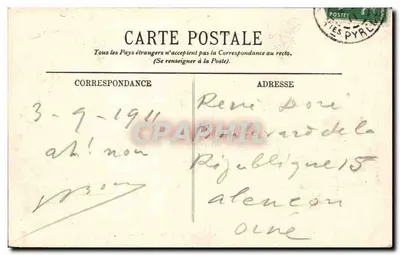 CARTE POSTALE
Tous les Pays étrangers n'acceptent pas la Correspondance au recto.
(Se renseigner à la Poste).
POSTES
PYRÉ
CORRESPONDANCE
ADRESSE
3-9-1911
ah! non
René Doré
Boulevard de la
République 15
alençon
orne
CPARAMA